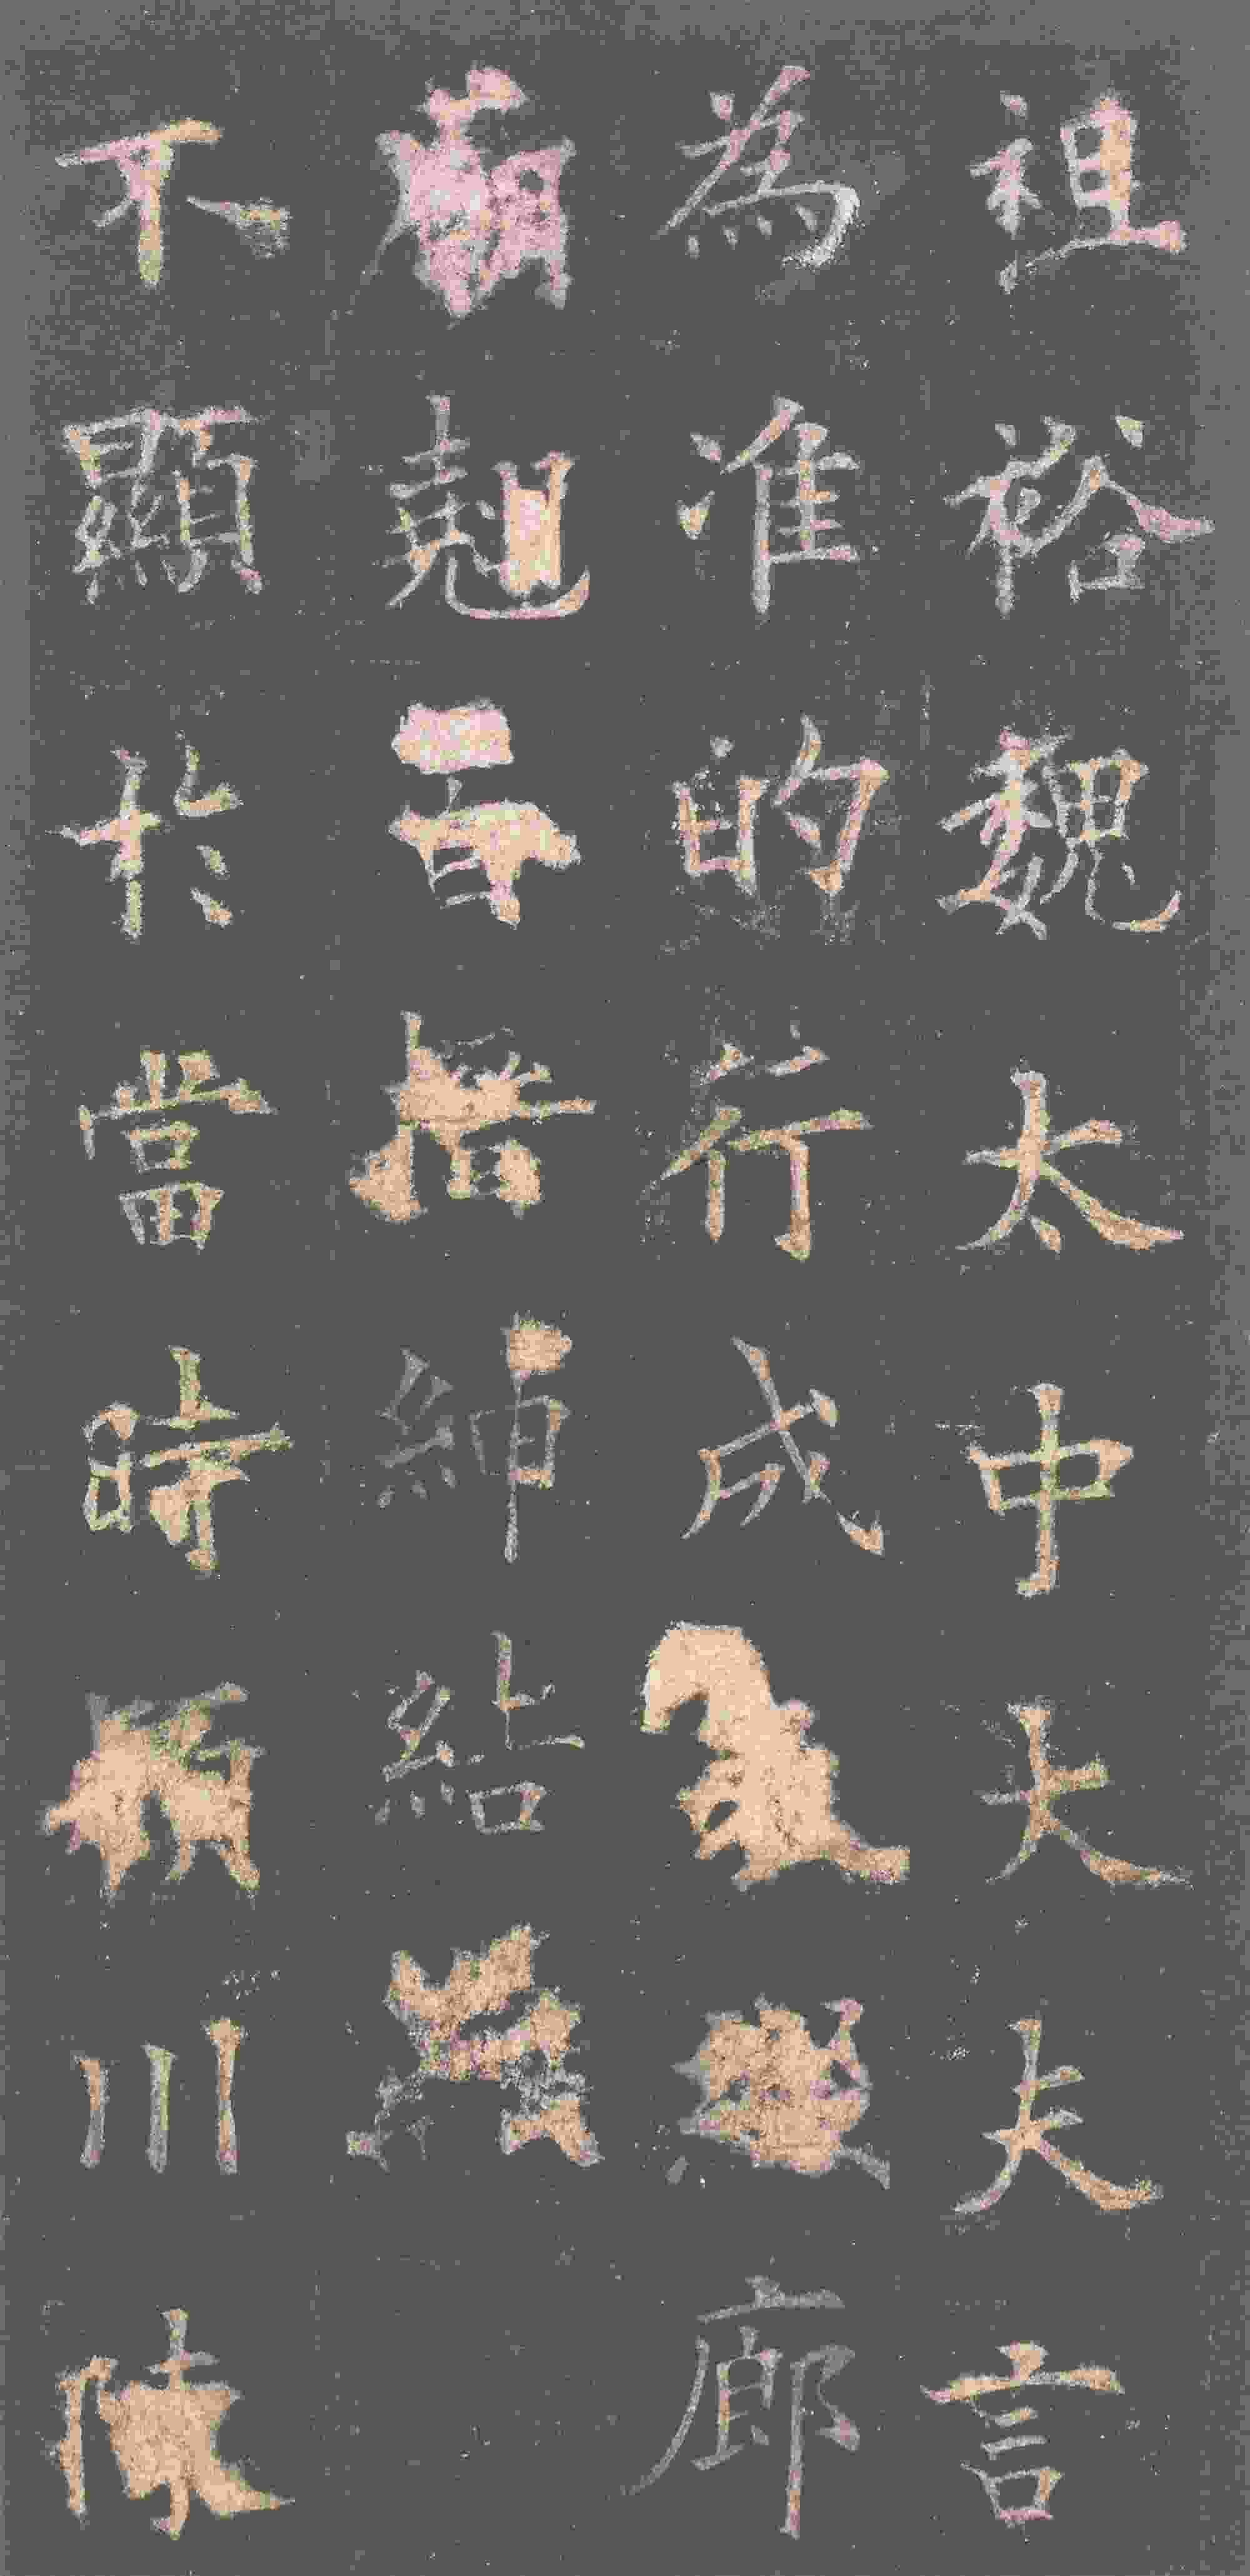 祖裕魏太中大夫言
為准的行成廊
廟翹紳結
不顯於當時川陳